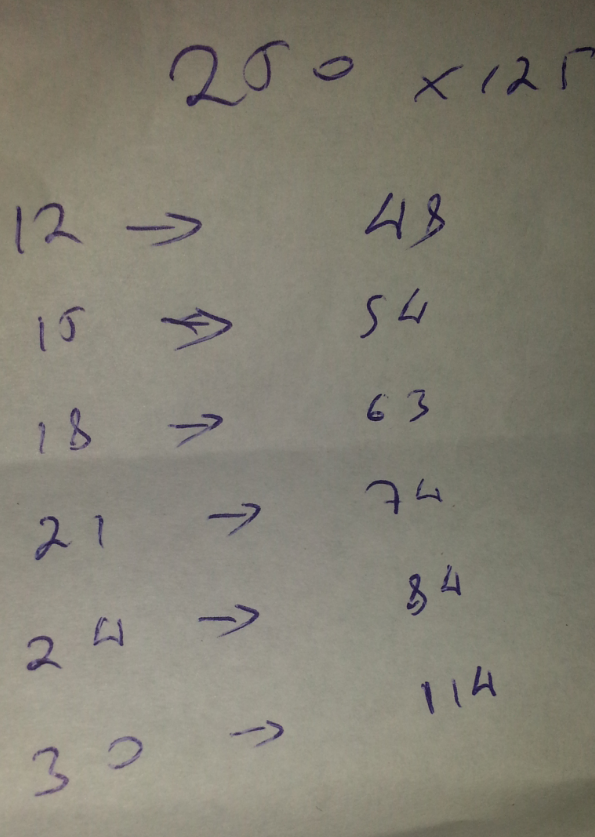 250 x125
12 → 48
15 → 54
18 → 63
21 → 74
24 → 84
30 → 114